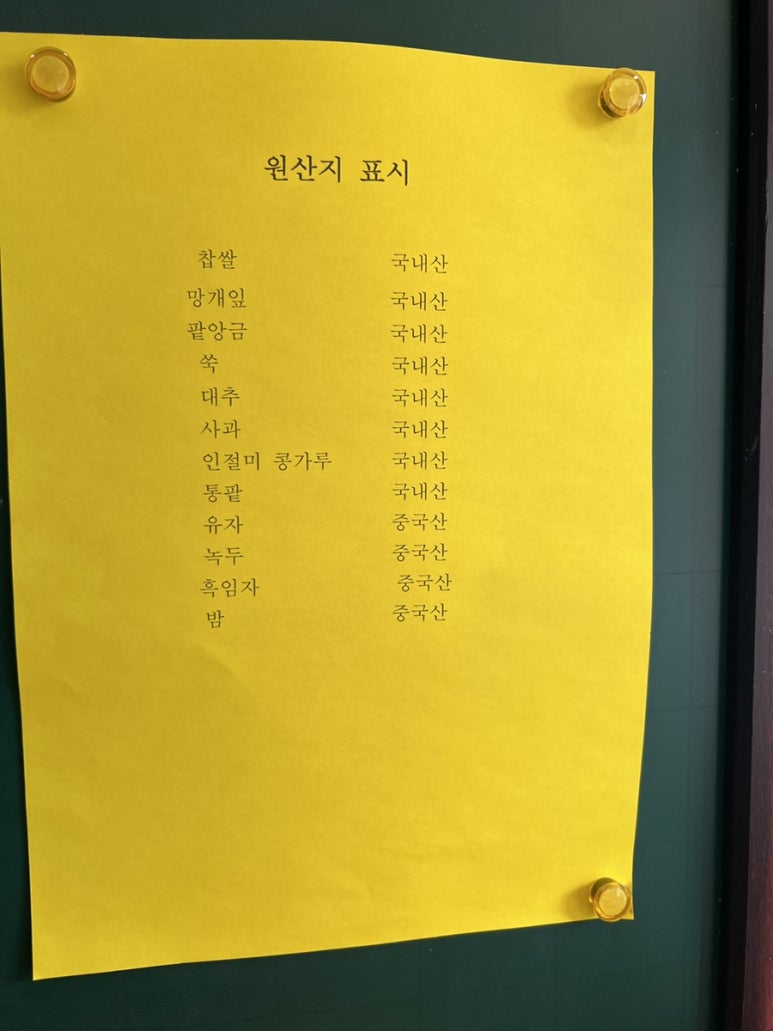 원산지 표시
찹쌀 국내산
망개잎 국내산
팥앙금 국내산
쑥 국내산
대추 국내산
사과 국내산
인절미 콩가루 국내산
통팥 국내산
유자 중국산
녹두 중국산
흑임자 중국산
밤 중국산